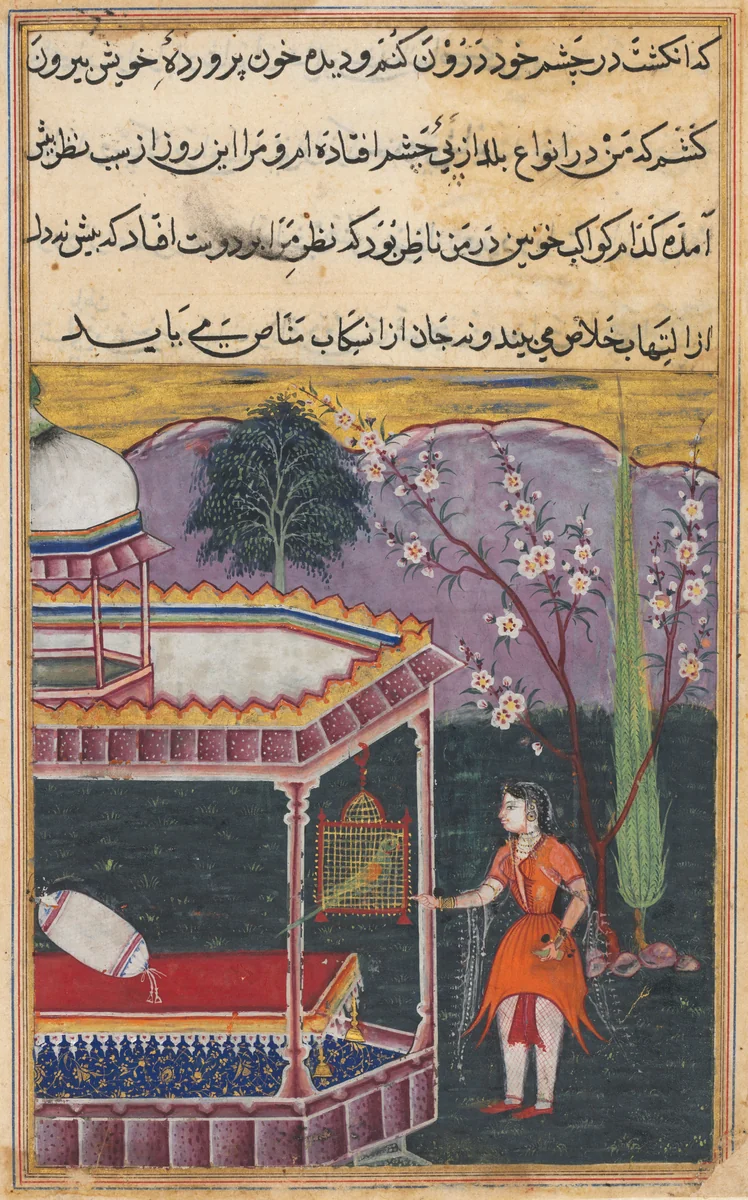 که انکشت در چشم خود دَرُوْن کنم و دیده خون پروردهٔ خویش بیرون
کَشَم که مَنْ در انواع بلا از پیٔ چشم افتاده ام و مَرا این روز از سبب نظر پیش
آمده کدام کواکب خونین دَر مَن ناظِر بُوَد که نظر مَرا بر دوست افتاد که پیش نه دل
از اِلتِهاب خَلاص می بیند و نه جان از انسِکاب مَناص می یابد